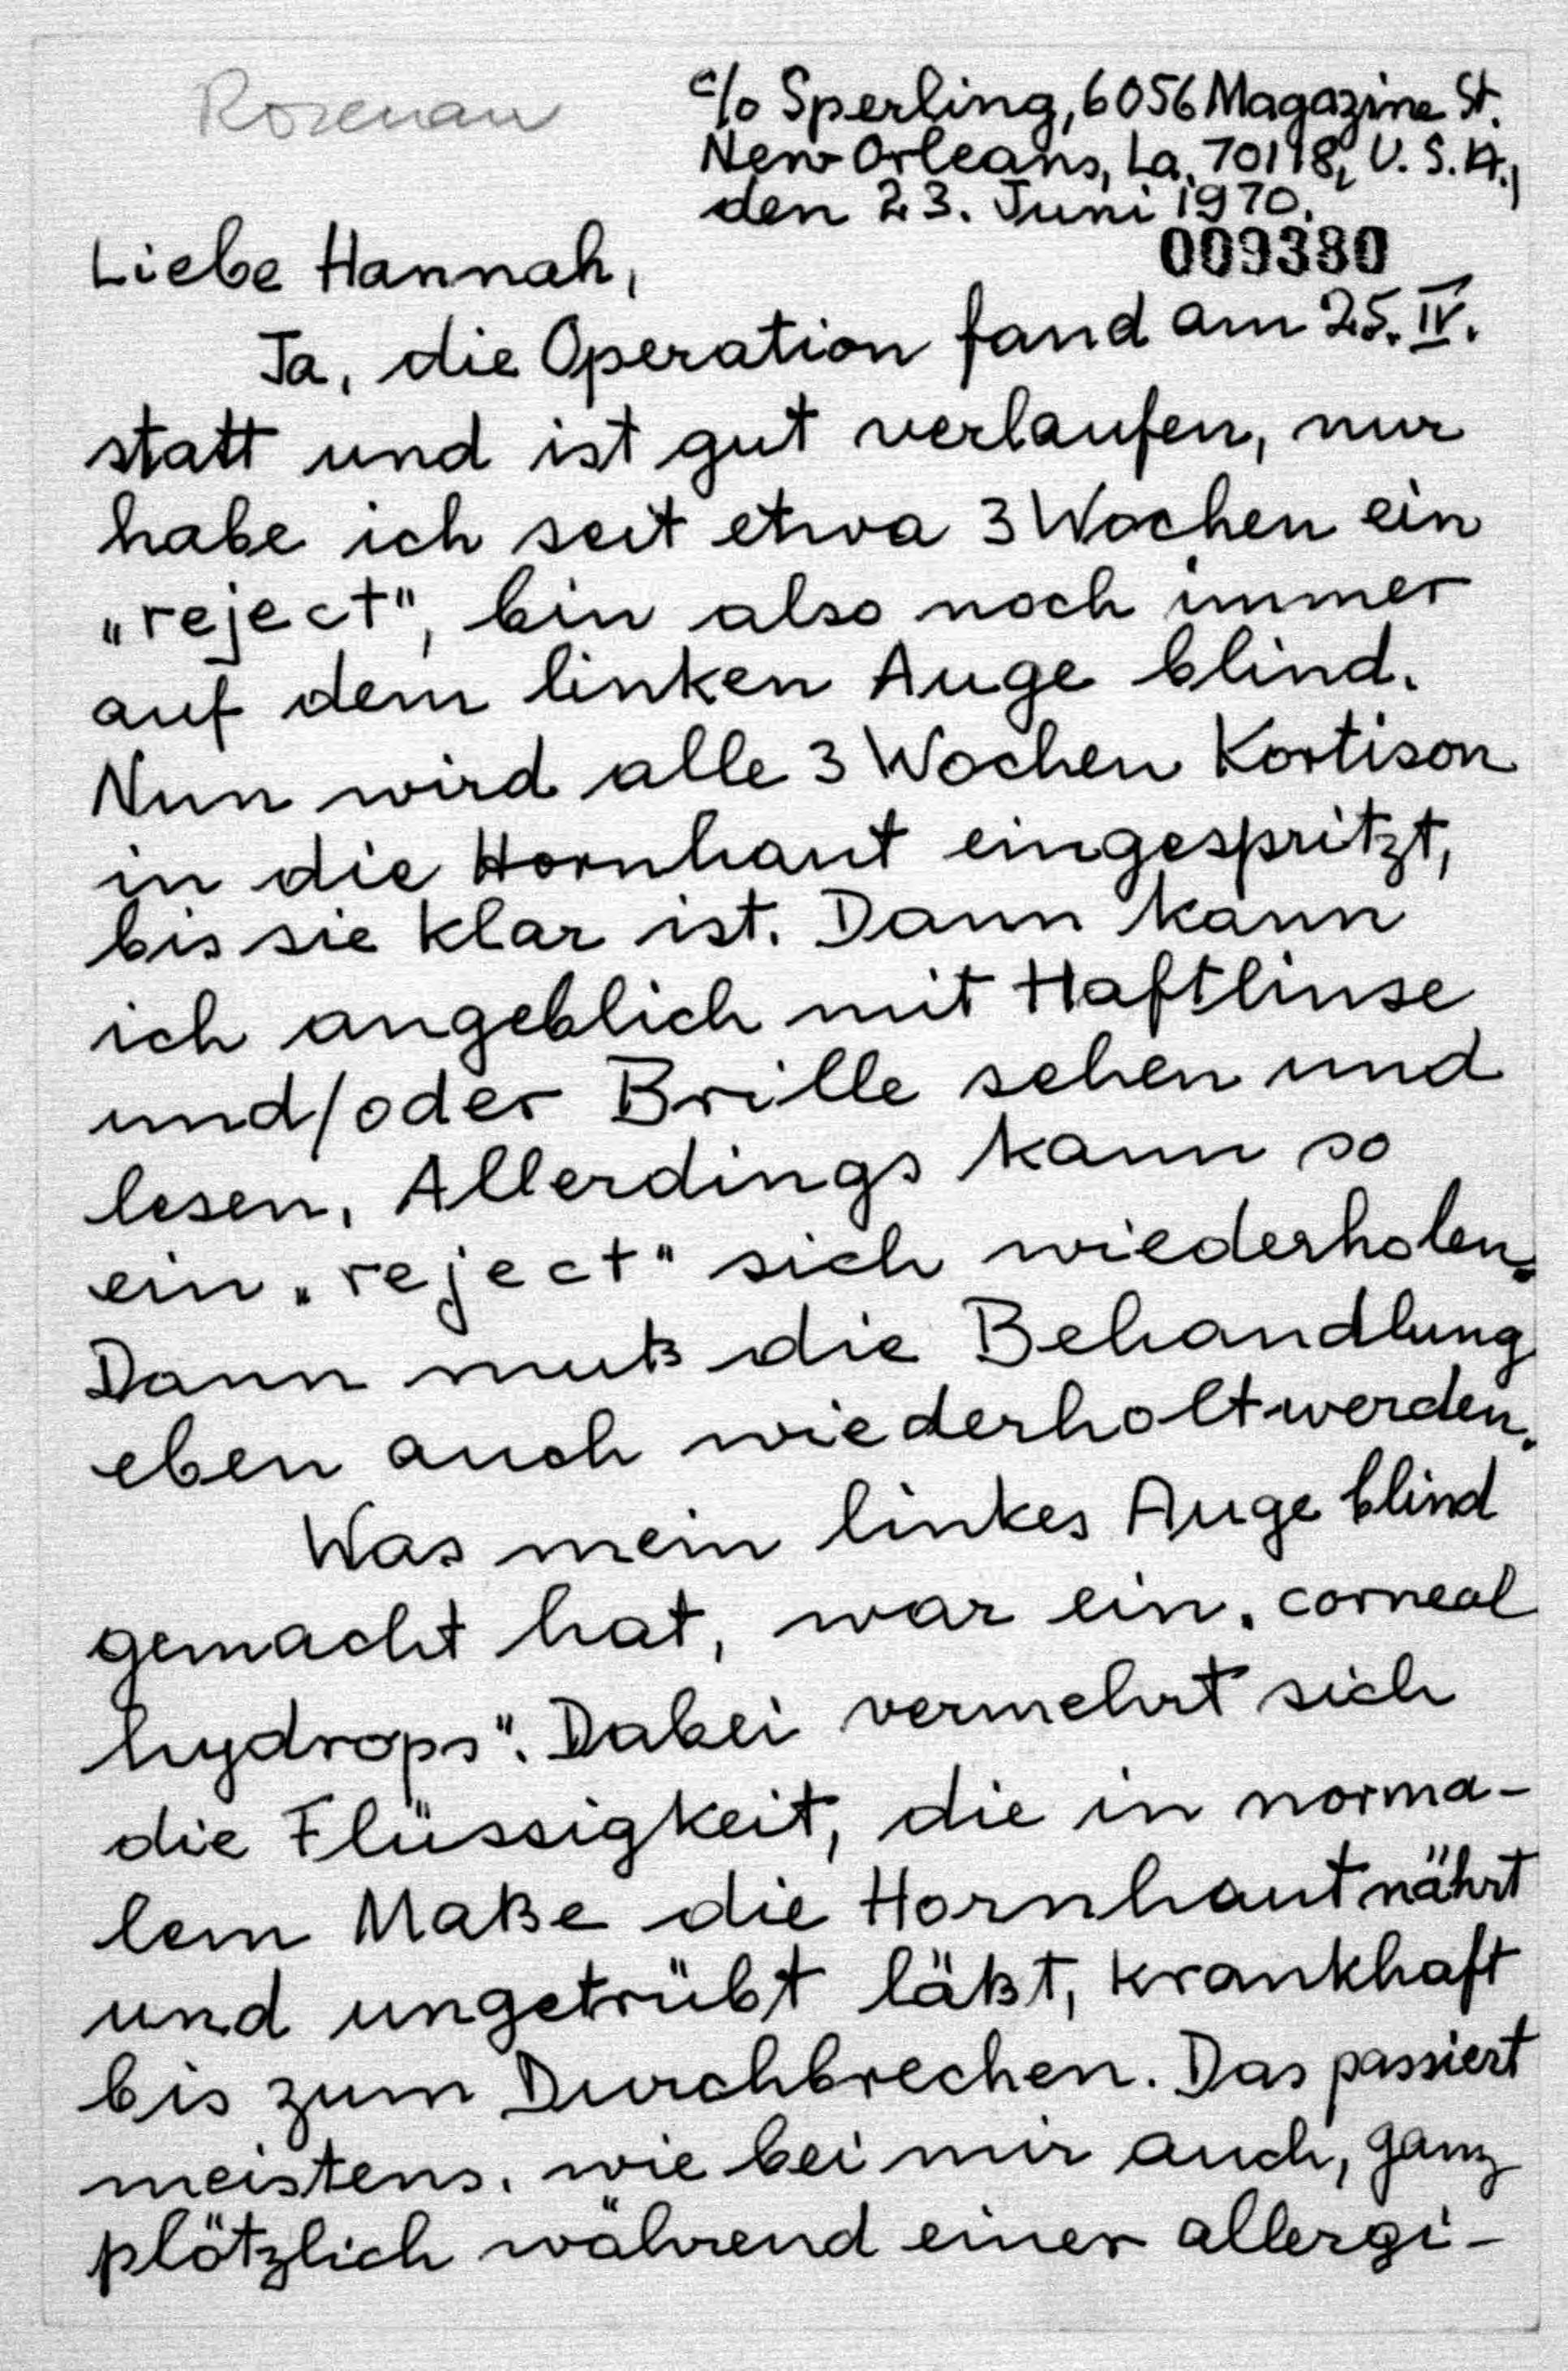 Rosenau
c/o Sperling, 6056 Magazine St.
New Orleans, La. 70118, U.S.A.,
den 23. Juni 1970.
009380
Liebe Hannah,
Ja, die Operation fand am 25. IV.
statt und ist gut verlaufen, nur
habe ich seit etwa 3 Wochen ein
„reject", bin also noch immer
auf dem linken Auge blind.
Nun wird alle 3 Wochen Kortison
in die Hornhaut eingespritzt,
bis sie klar ist. Dann kann
ich angeblich mit Haftlinse
und/oder Brille sehen und
lesen. Allerdings kann so
ein „reject" sich wiederholen.
Dann muß die Behandlung
eben auch wiederholt werden.
Was mein linkes Auge blind
gemacht hat, war ein „corneal
hydrops". Dabei vermehrt sich
die Flüssigkeit, die in norma-
lem Maße die Hornhaut nährt
und ungetrübt läßt, krankhaft
bis zum Durchbrechen. Das passiert
meistens, wie bei mir auch, ganz
plötzlich während einer allergi-